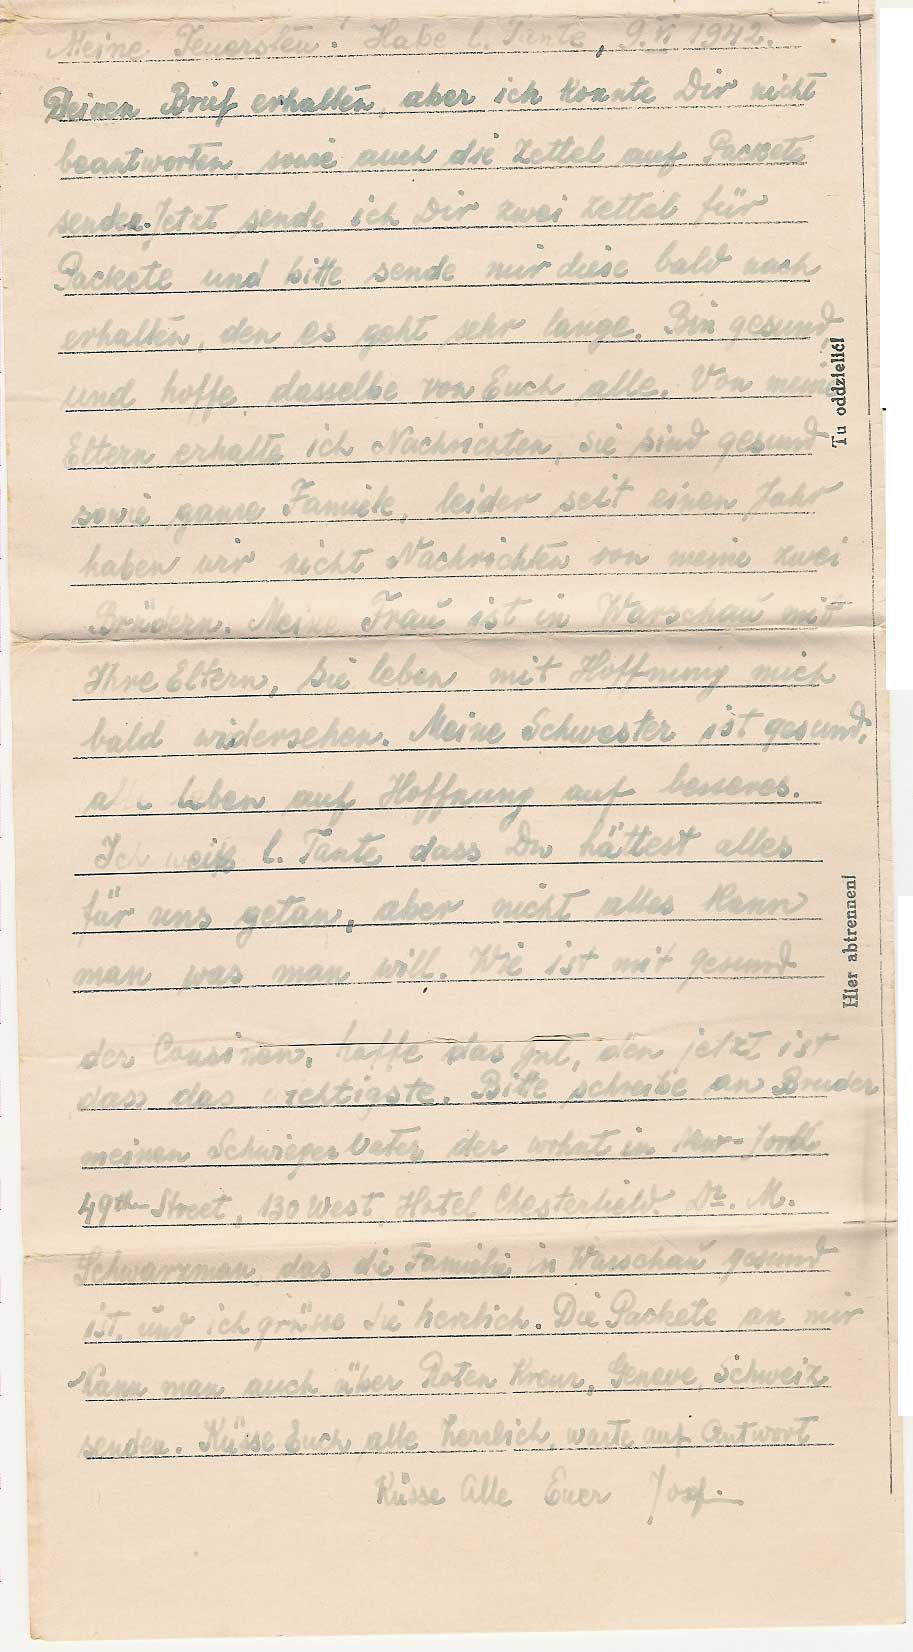 Meine Teuersten! Habe l. Tante, 9.VI 1942.
Deinen Brief erhalten, aber ich konnte Dir nicht
beantworten, sowie auch die Zettel auf Packete
senden. Jetzt sende ich Dir zwei Zettel für
Packete und bitte sende mir diese bald nach
erhalten, den es geht sehr lange. Bin gesund
und hoffe dasselbe von Euch alle. Von meine
Eltern erhalte ich Nachrichten, sie sind gesund
sowie ganze Familie, leider seit einen Jahr
haben wir nicht Nachrichten von meine zwei
Brüdern. Meine Frau ist in Warschau mit
Ihre Eltern, Sie leben mit Hoffnung mich
bald widersehen. Meine Schwester ist gesund,
alle leben auf Hoffnung auf besseres.
Ich weiß l. Tante dass Du hättest alles
für uns getan, aber nicht alles kann
man was man will. Wie ist mit gesund
der Cousinen, hoffe das gut, den jetzt ist
dass das wichtigste. Bitte schreibe an Bruder
meinen Schwieger Vater der wohnt in New-Jork
49th Street, 130 West, Hotel Chesterfield. Dr. M.
Schwarzman das di Familie in Warschau gesund
ist, und ich grüsse Sie herzlich. Die Packete an mir
kann man auch über Roten Kreuz, Geneve, Schweiz
senden. Küsse Euch alle herzlich, warte auf Antwort
Küsse Alle Euer Josef
Tu oddzielić!
Hier abtrennen!